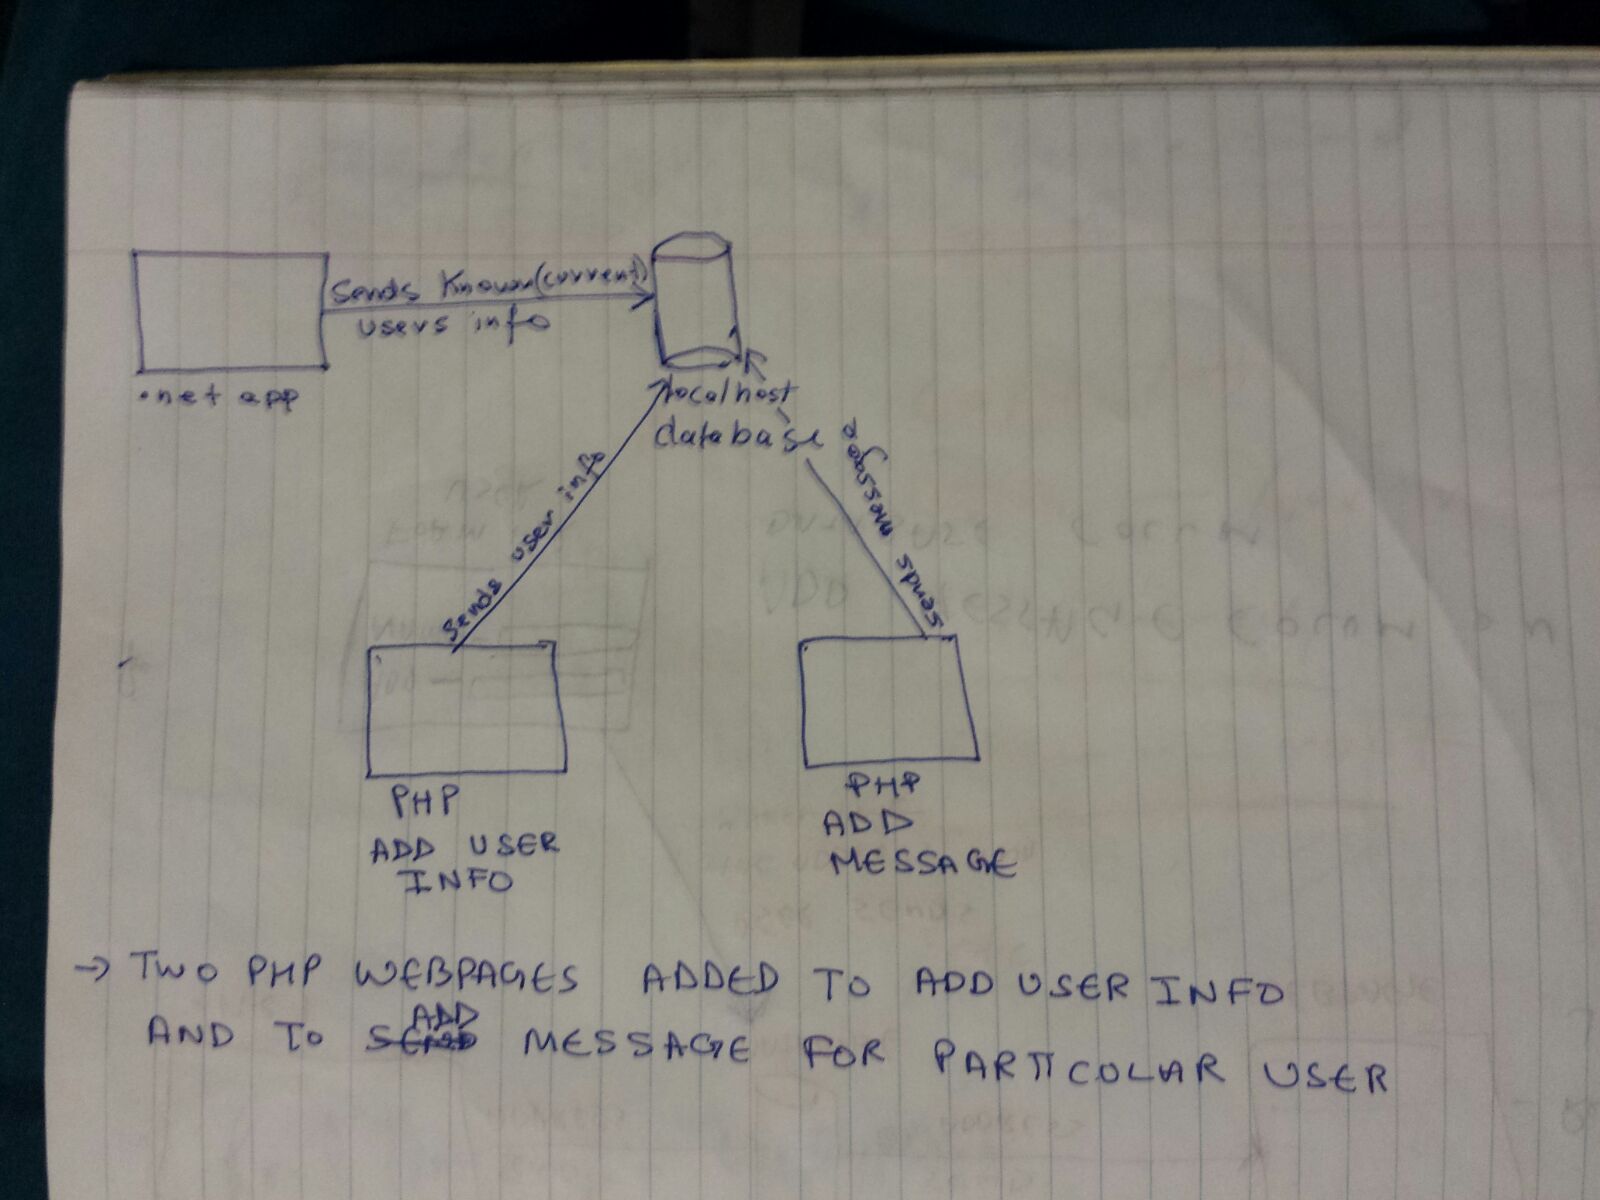 Sends Known(current)
users info
.net app
localhost
database
Sends user info
sends message
PHP
ADD USER
INFO
PHP
ADD
MESSAGE
→ TWO PHP WEBPAGES ADDED TO ADD USER INFO
AND TO ADD MESSAGE FOR PARTICULAR USER